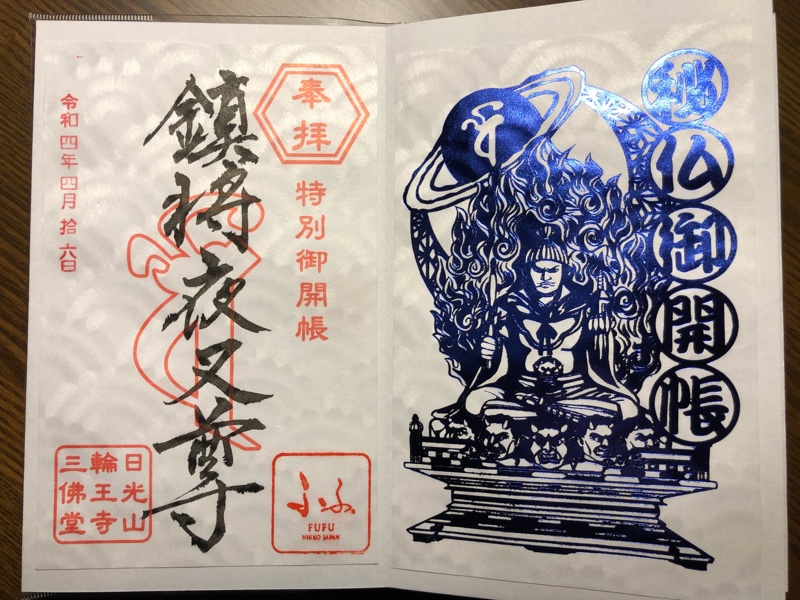 秘仏御開帳
奉拝
特別御開帳
鎮将夜叉尊
令和四年四月拾六日
日光山
輪王寺
三佛堂
ふふ
FUFU
NIKKO JAPAN